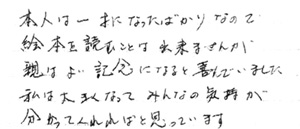 本人は一才になったばかりなので
絵本を読むことは出来ませんが
親はよい記念になると喜んでいました
私は大きくなってみんなの気持が
分かってくれればと思っています